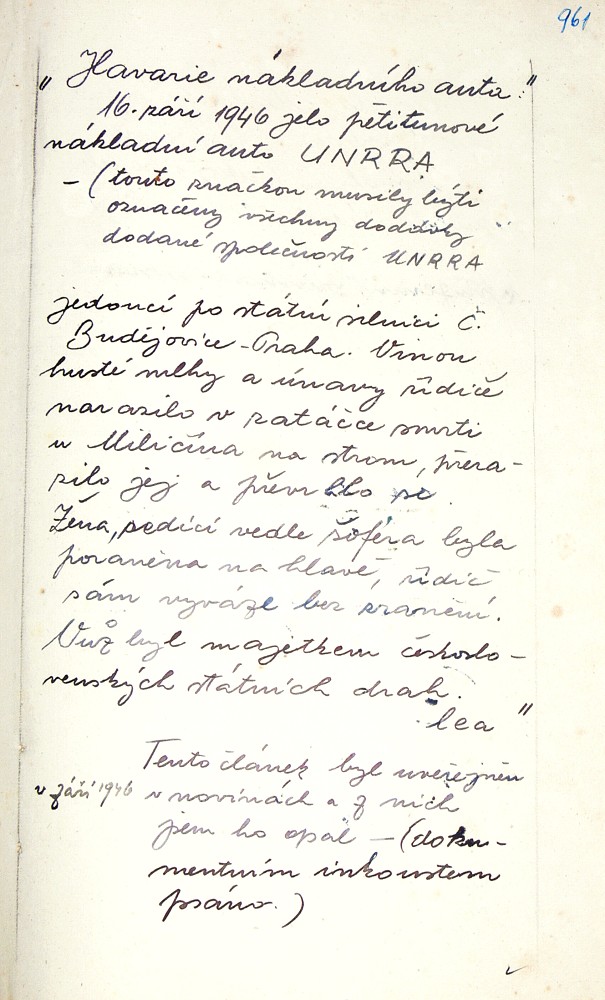 961
„Havarie nákladního auta."
16. září 1946 jelo pětitunové
nákladní auto UNRRA
– (touto značkou musily býti
označeny všechny dodávky
dodané společností UNRRA
jedoucí po státní silnici Č.
Budějovice - Praha. Vinou
husté mlhy a únavy řidiče
narazilo v zatáčce smrti
u Miličína na strom, přera-
zilo jej a převrhlo se.
Žena, sedící vedle šoféra byla
poraněna na hlavě, řidič
sám vyvázl bez zranění.
Vůz byl majetkem českoslo-
venských státních drah.
lea"
Tento článek byl uveřejněn
v září 1946 v novinách a z nich
jsem ho opsal – (doku-
mentním inkoustem
psáno.)